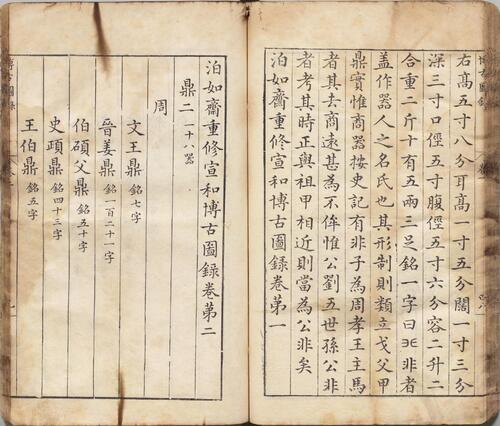 右高五寸八分耳高一寸五分闊一寸三分
深三寸口徑五寸腹徑五寸六分容二升二
合重二斤十有五兩三足銘一字曰非者
盖作器人之名氏也其形制則類立戈父甲
鼎實惟商器按史記有非子為周孝王主馬
者其去商遠甚為不侔惟公劉五世孫公非
者考其時正與祖甲相近則當為公非矣
泊如齋重修宣和博古圖錄卷第一
泊如齋重修宣和博古圖錄卷第二
鼎二一十八器
周
文王鼎銘七字
晉姜鼎銘一百二十一字
伯碩父鼎銘五十字
史頙鼎銘四十三字
王伯鼎銘五字